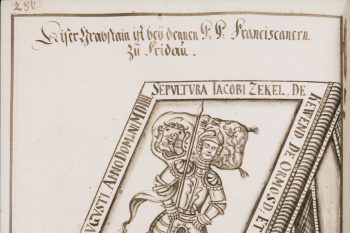 236.
Diser Grabstain ist beÿ dennen P. P. Franciscanern
zu Fridau.
SEPVLTVRA IACOBI ZEKEL. DE
KEWEND DE ORMOSD ET
VGVSTI ANNO DOMINI M